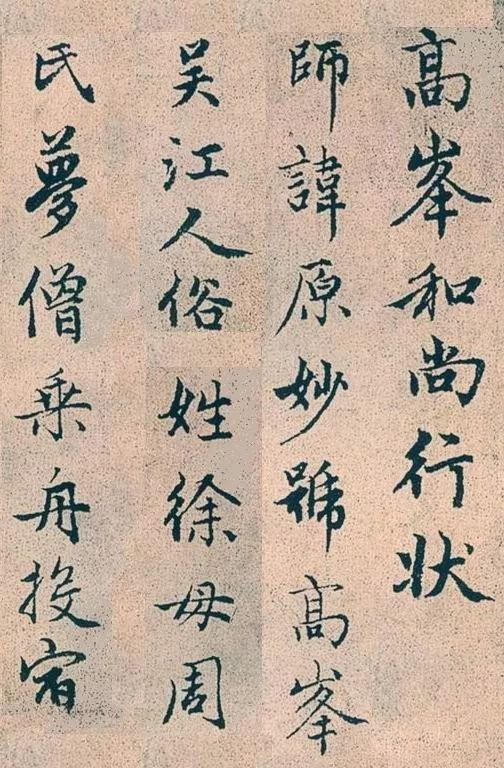 高峯和尚行状
師諱原妙號高峯
吴江人俗姓徐母周
氏夢僧乗舟投宿